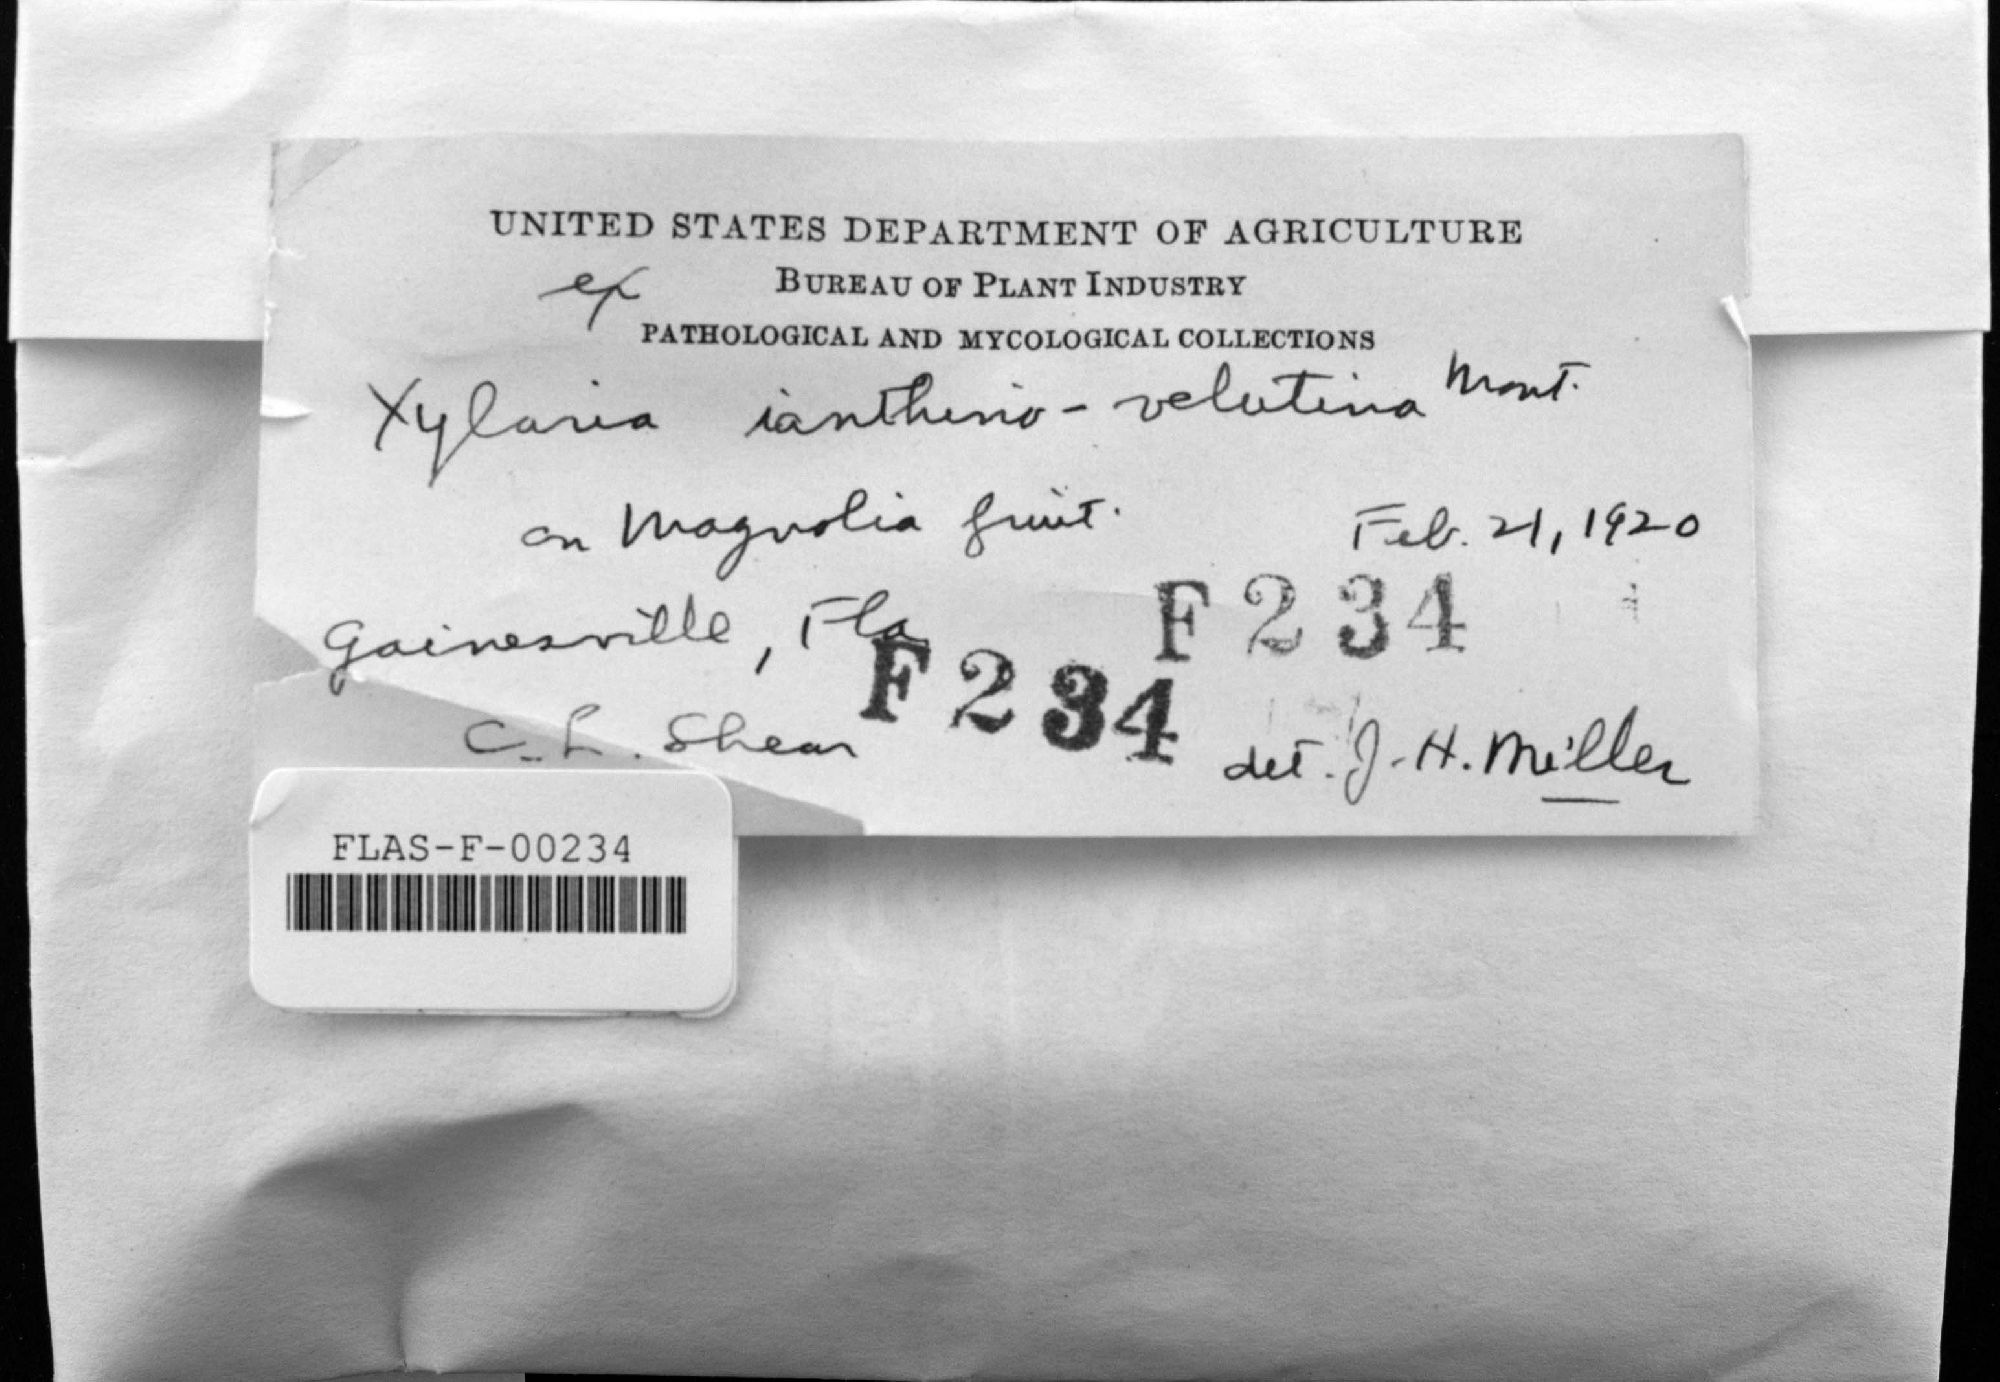 UNITED STATES DEPARTMENT OF AGRICULTURE
ex BUREAU OF PLANT INDUSTRY
PATHOLOGICAL AND MYCOLOGICAL COLLECTIONS
Xylaria ianthino-velutina Mont.
on Magnolia fruit. Feb. 21, 1920
Gainesville, Fla
F 234
F 234
C. L. Shear
det. J. H. Miller
FLAS-F-00234